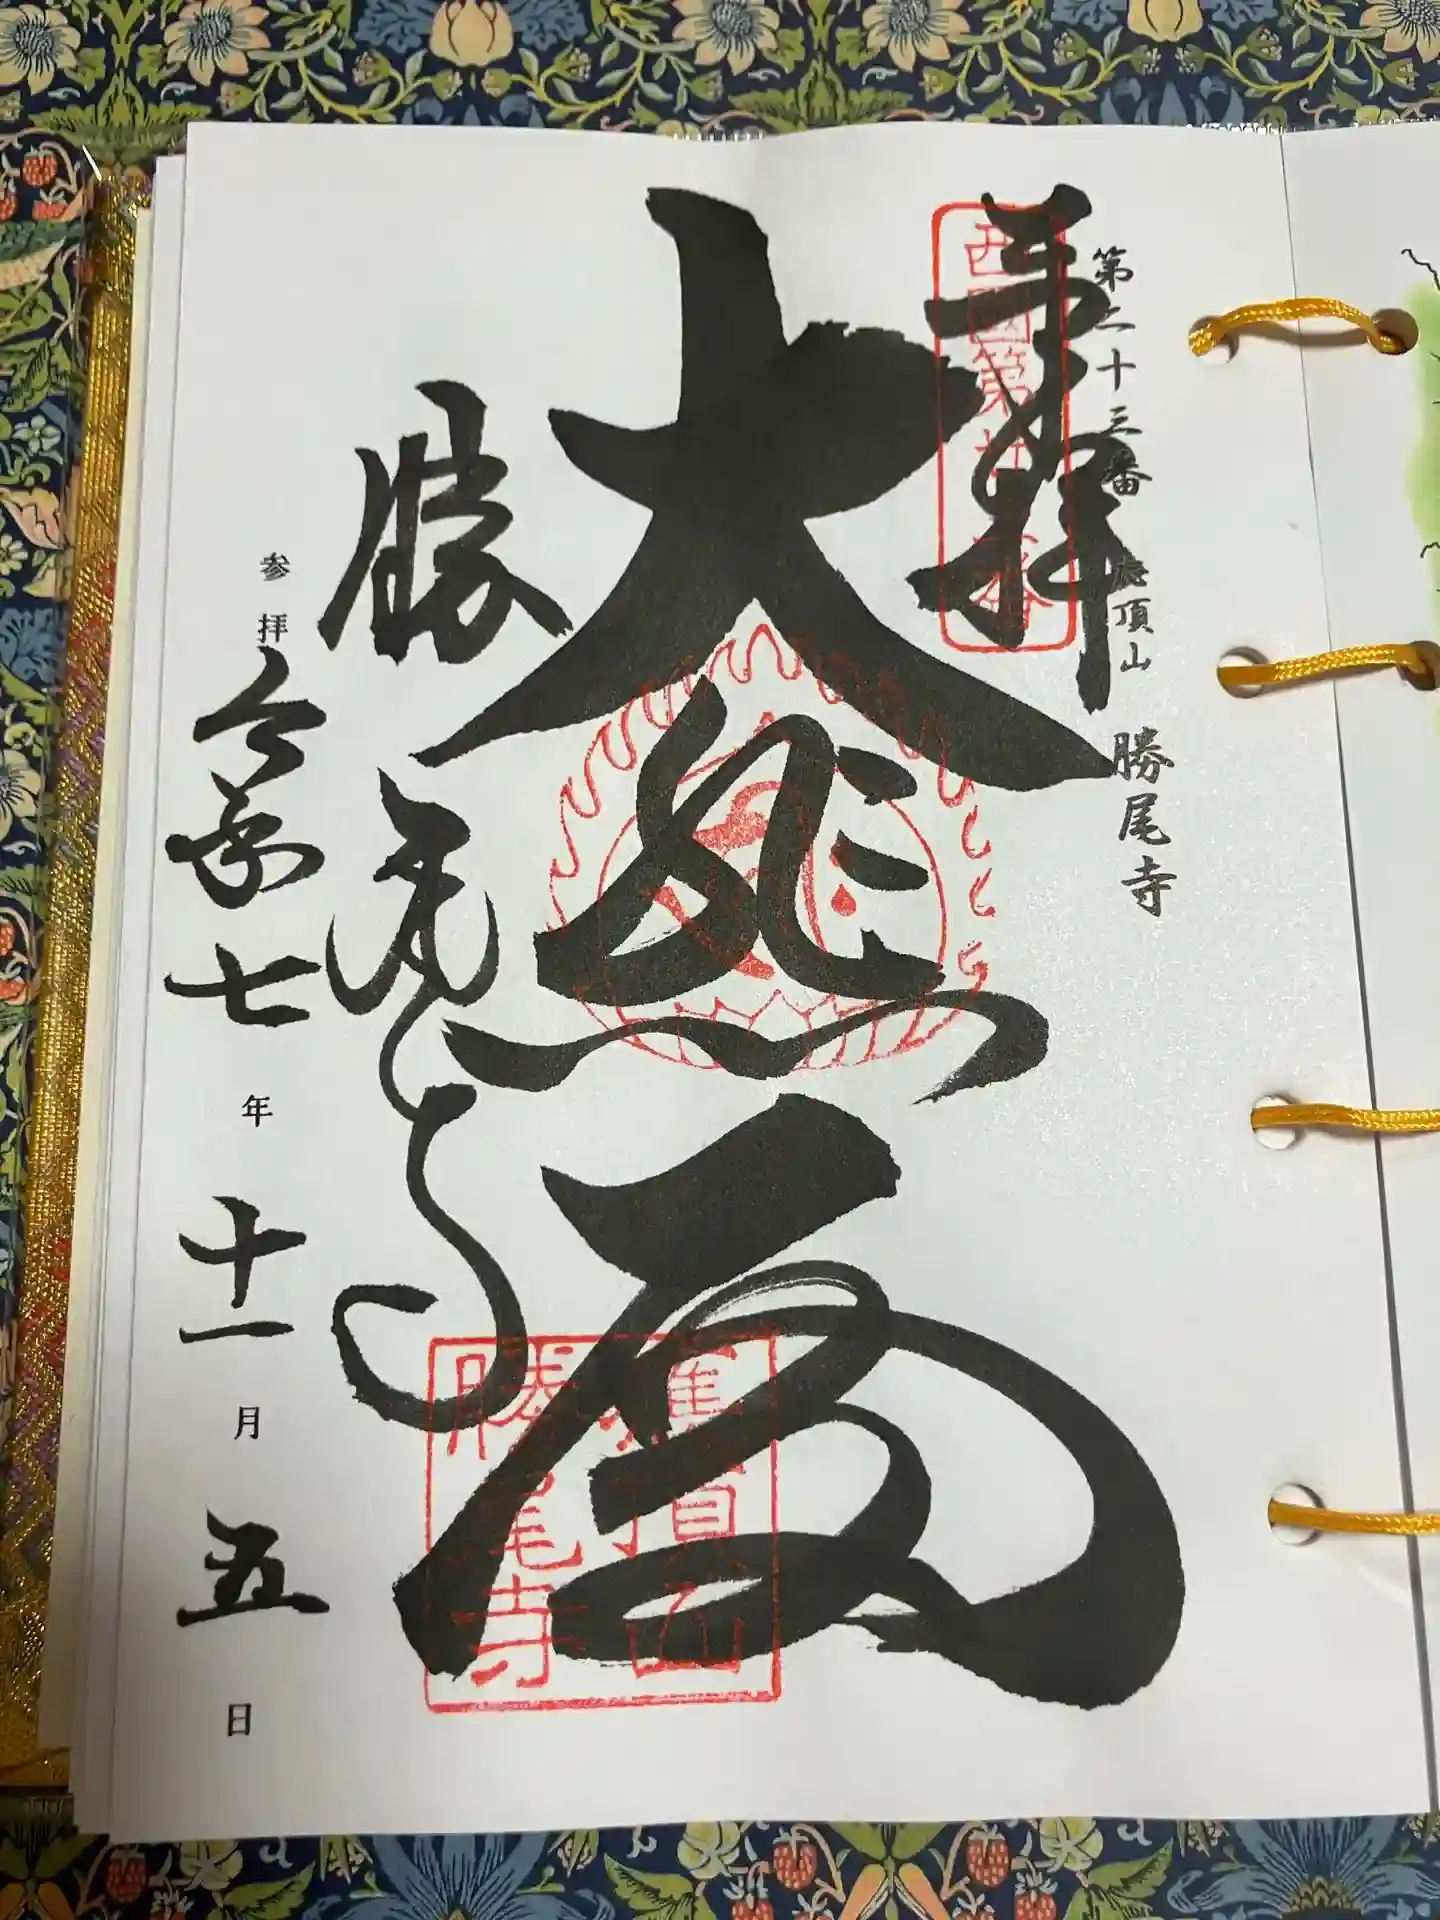 第二十三番 應頂山 勝尾寺
奉拝
西國第廿三番
大悲殿
勝尾寺
應頂山
勝尾寺
参拝 令和七年十一月五日